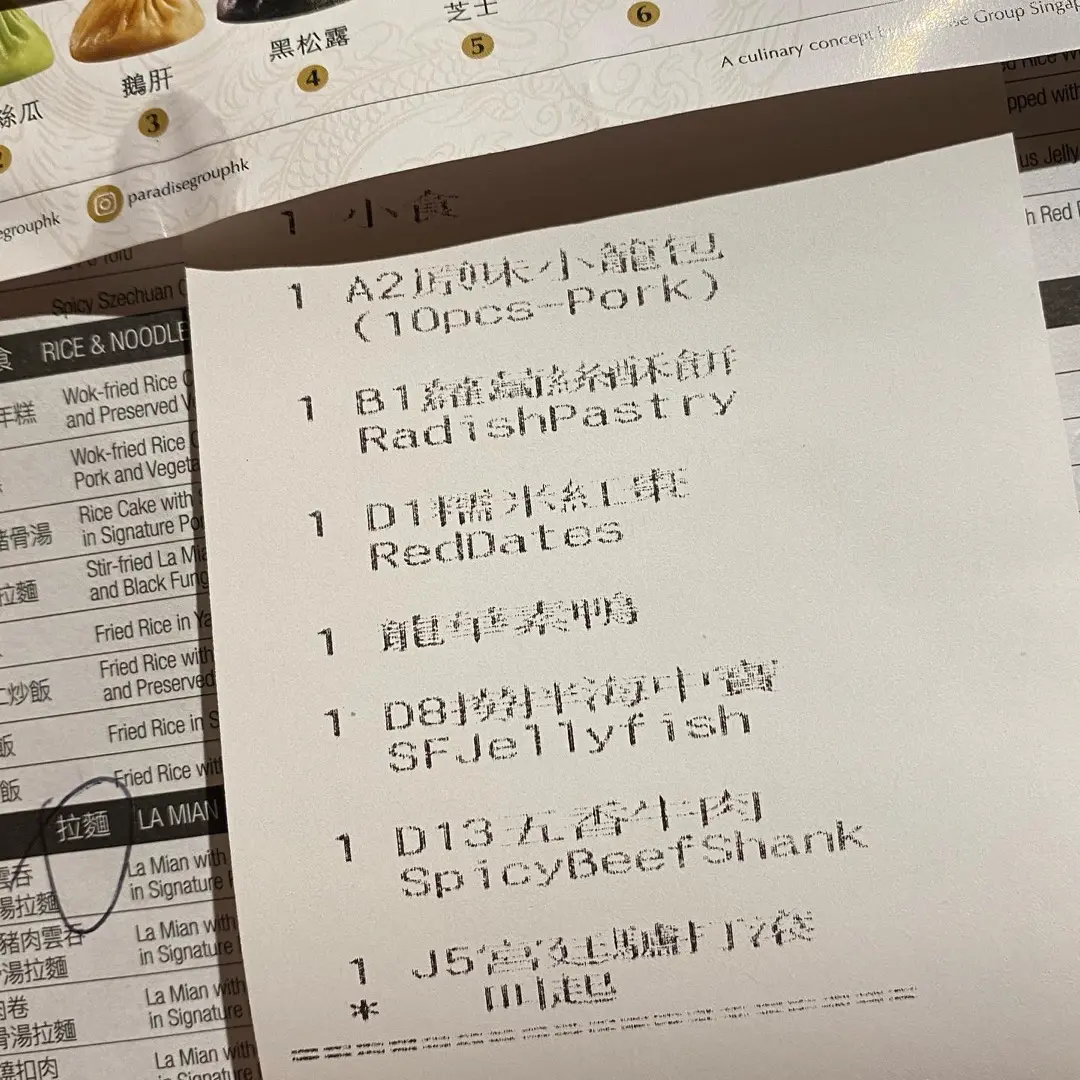 絲瓜
2
鵝肝
3
黑松露
4
芝士
5
6
A culinary concept by
Group Singap
egrouphk
paradisegrouphk
1 小食
1 A2原味小籠包
(10pcs-Pork)
1 B1蘿蔔絲酥餅
RadishPastry
1 D1糯米紅棗
RedDates
1 龍華素鴨
1 D8撈拌海中寶
SFJellyfish
1 D13五香牛肉
SpicyBeefShank
1 J5宮廷驢打滾
* 叫起
Spicy Szechuan
食 RICE & NOODLE
年糕 Wok-fried Rice
and Preserved V
Wok-fried Rice
Pork and Vegeta
豬骨湯 Rice Cake with
in Signature Po
拉麵 Stir-fried La Mia
and Black Fung
Fried Rice in Ya
炒飯 Fried Rice with
and Preserved
飯 Fried Rice in S
飯 Fried Rice with
拉麵 LA MIAN
雲吞 La Mian with
湯拉麵 in Signature
豬肉雲吞 La Mian with
湯拉麵 in Signature
肉卷 La Mian with
骨湯拉麵 in Signature
扣肉 La Mian with
in Signature
pped with
us Jelly
h Red